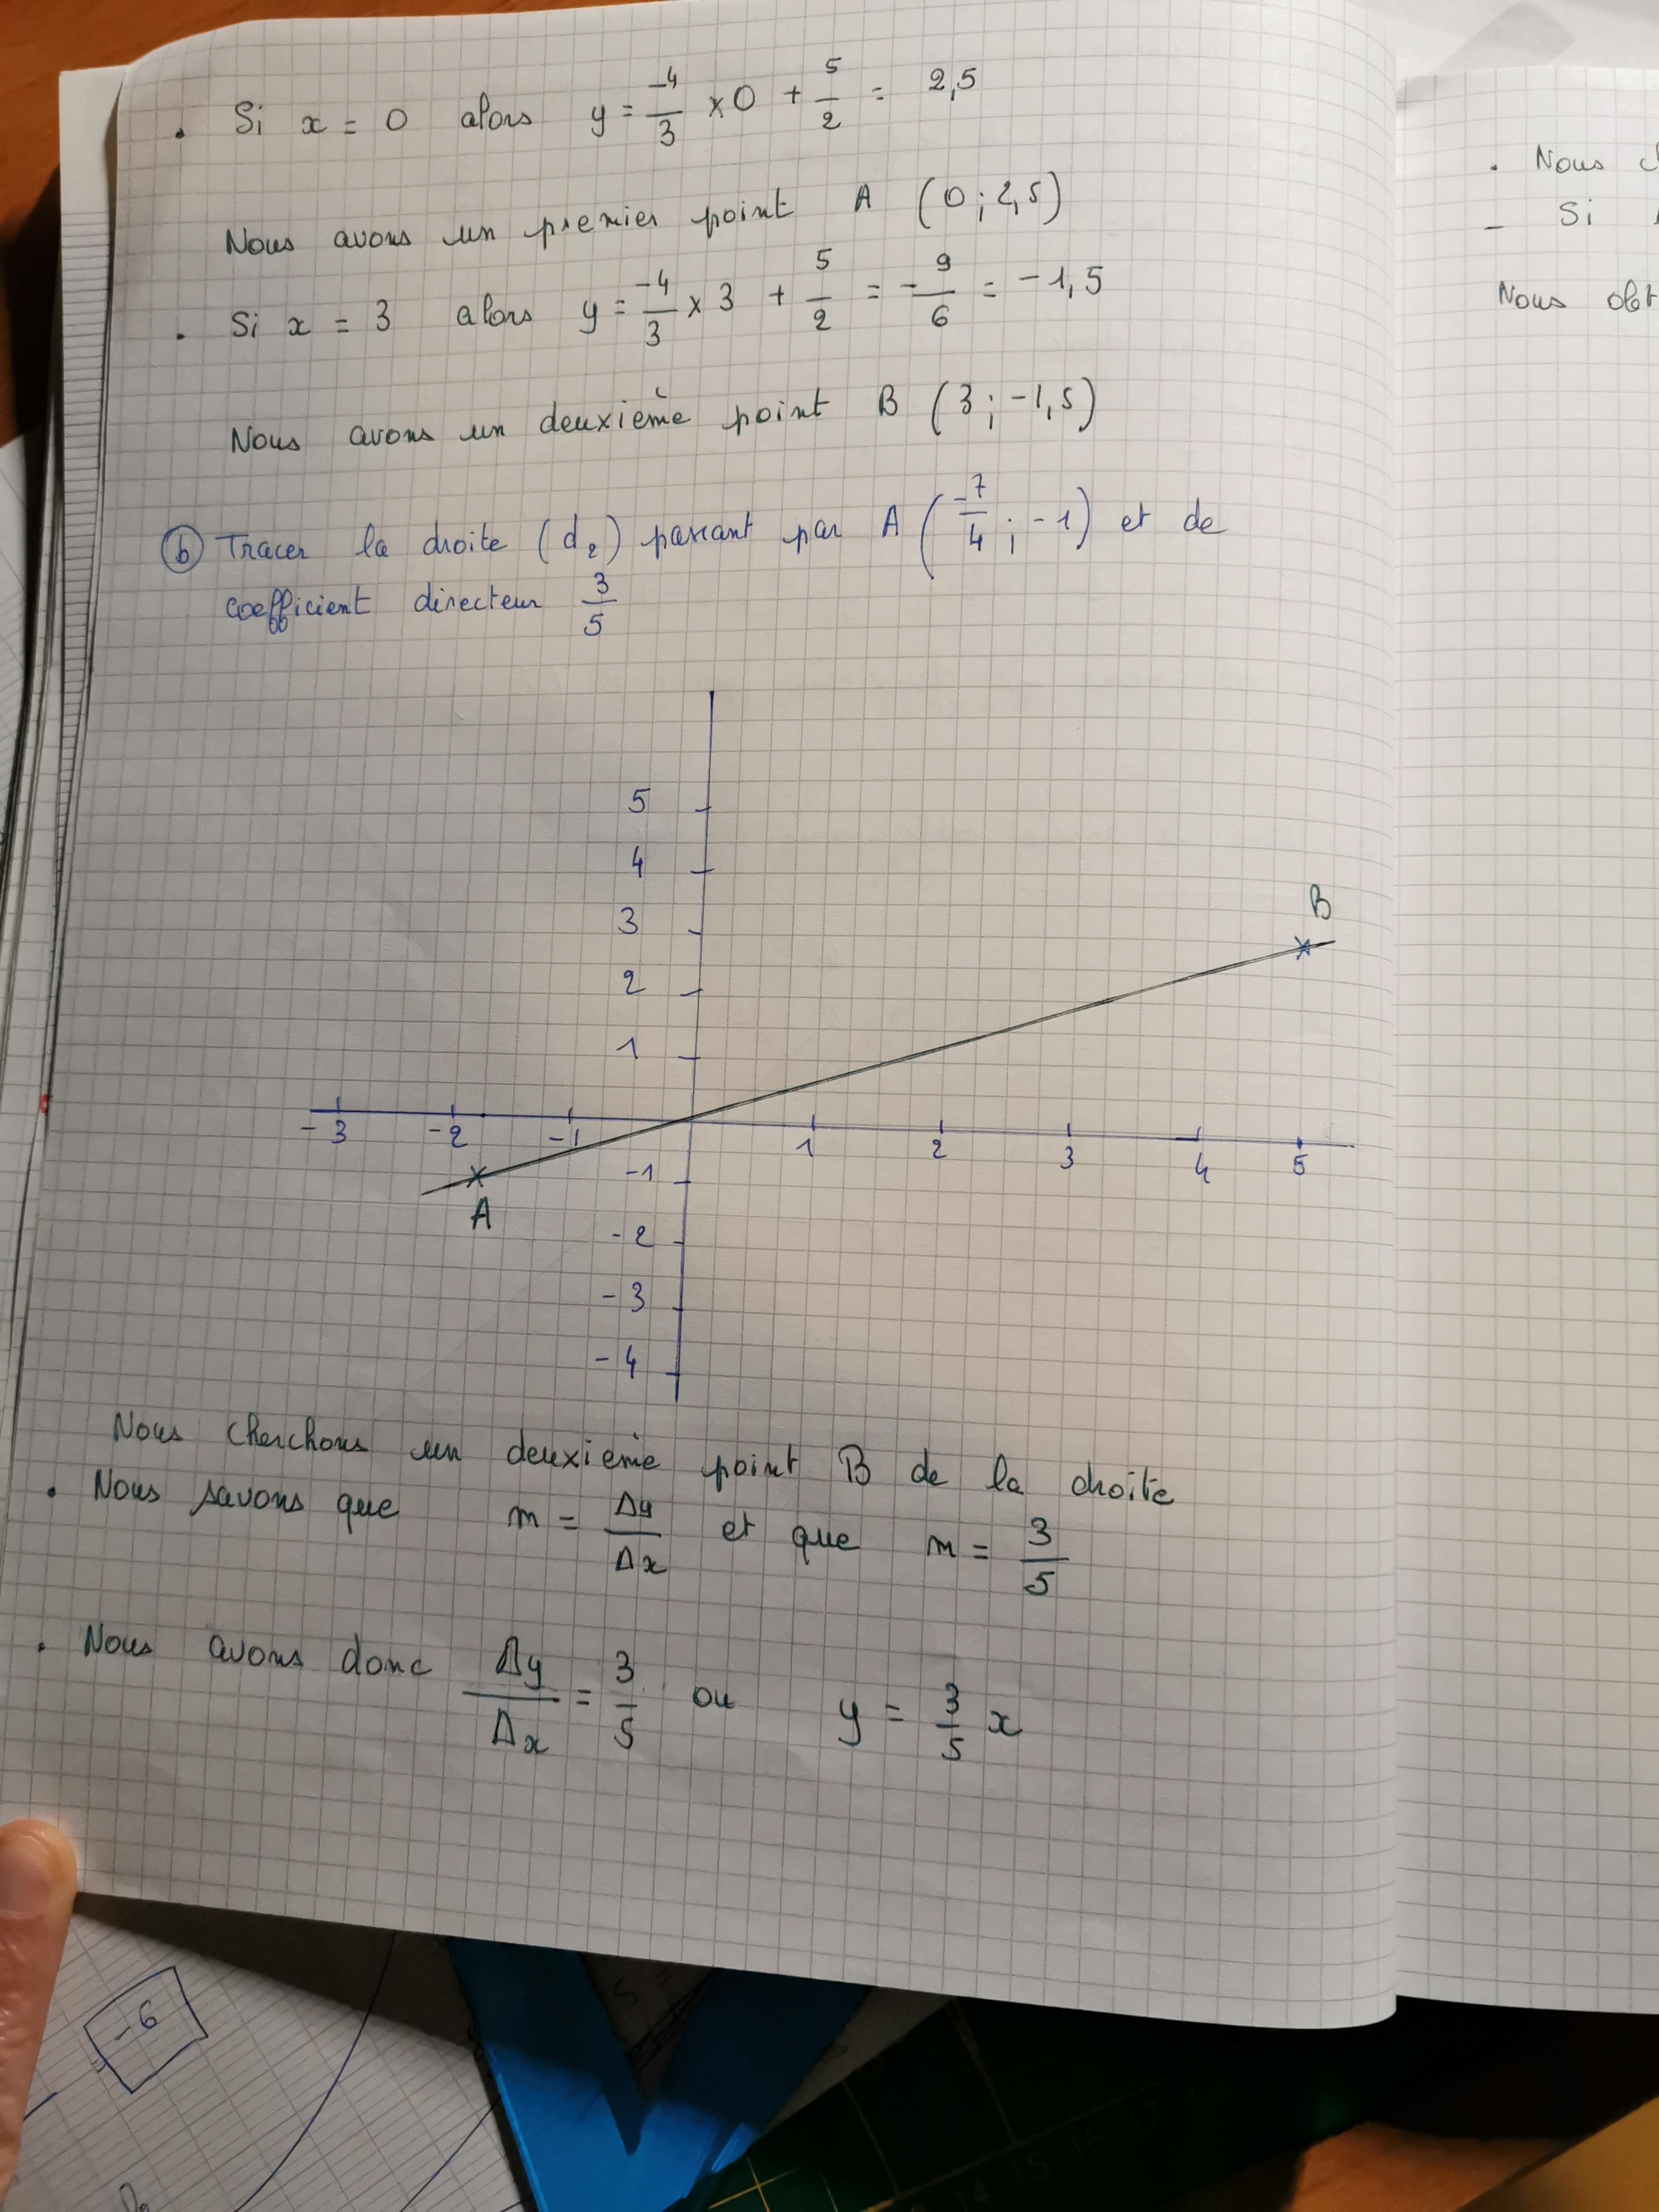 . Si x = 0 alors y = -4/3 × 0 + 5/2 = 2,5
Nous avons un premier point A (0 ; 2,5)
. Si x = 3 alors y = -4/3 × 3 + 5/2 = -9/6 = -1,5
Nous avons un deuxième point B (3 ; -1,5)
ⓑ Tracer la droite (d₂) passant par A (-7/4 ; -1) et de
coefficient directeur 3/5
5
4
B
3
2
1
-3 -2 -1 1 2 3 4 5
-1
A
-2
-3
-4
Nous cherchons un deuxième point B de la droite
. Nous savons que m = Δy/Δx et que m = 3/5
. Nous avons donc Δy/Δx = 3/5 ou y = 3/5 x
. Nous
- Si
Nous
-6
14 15 16 17